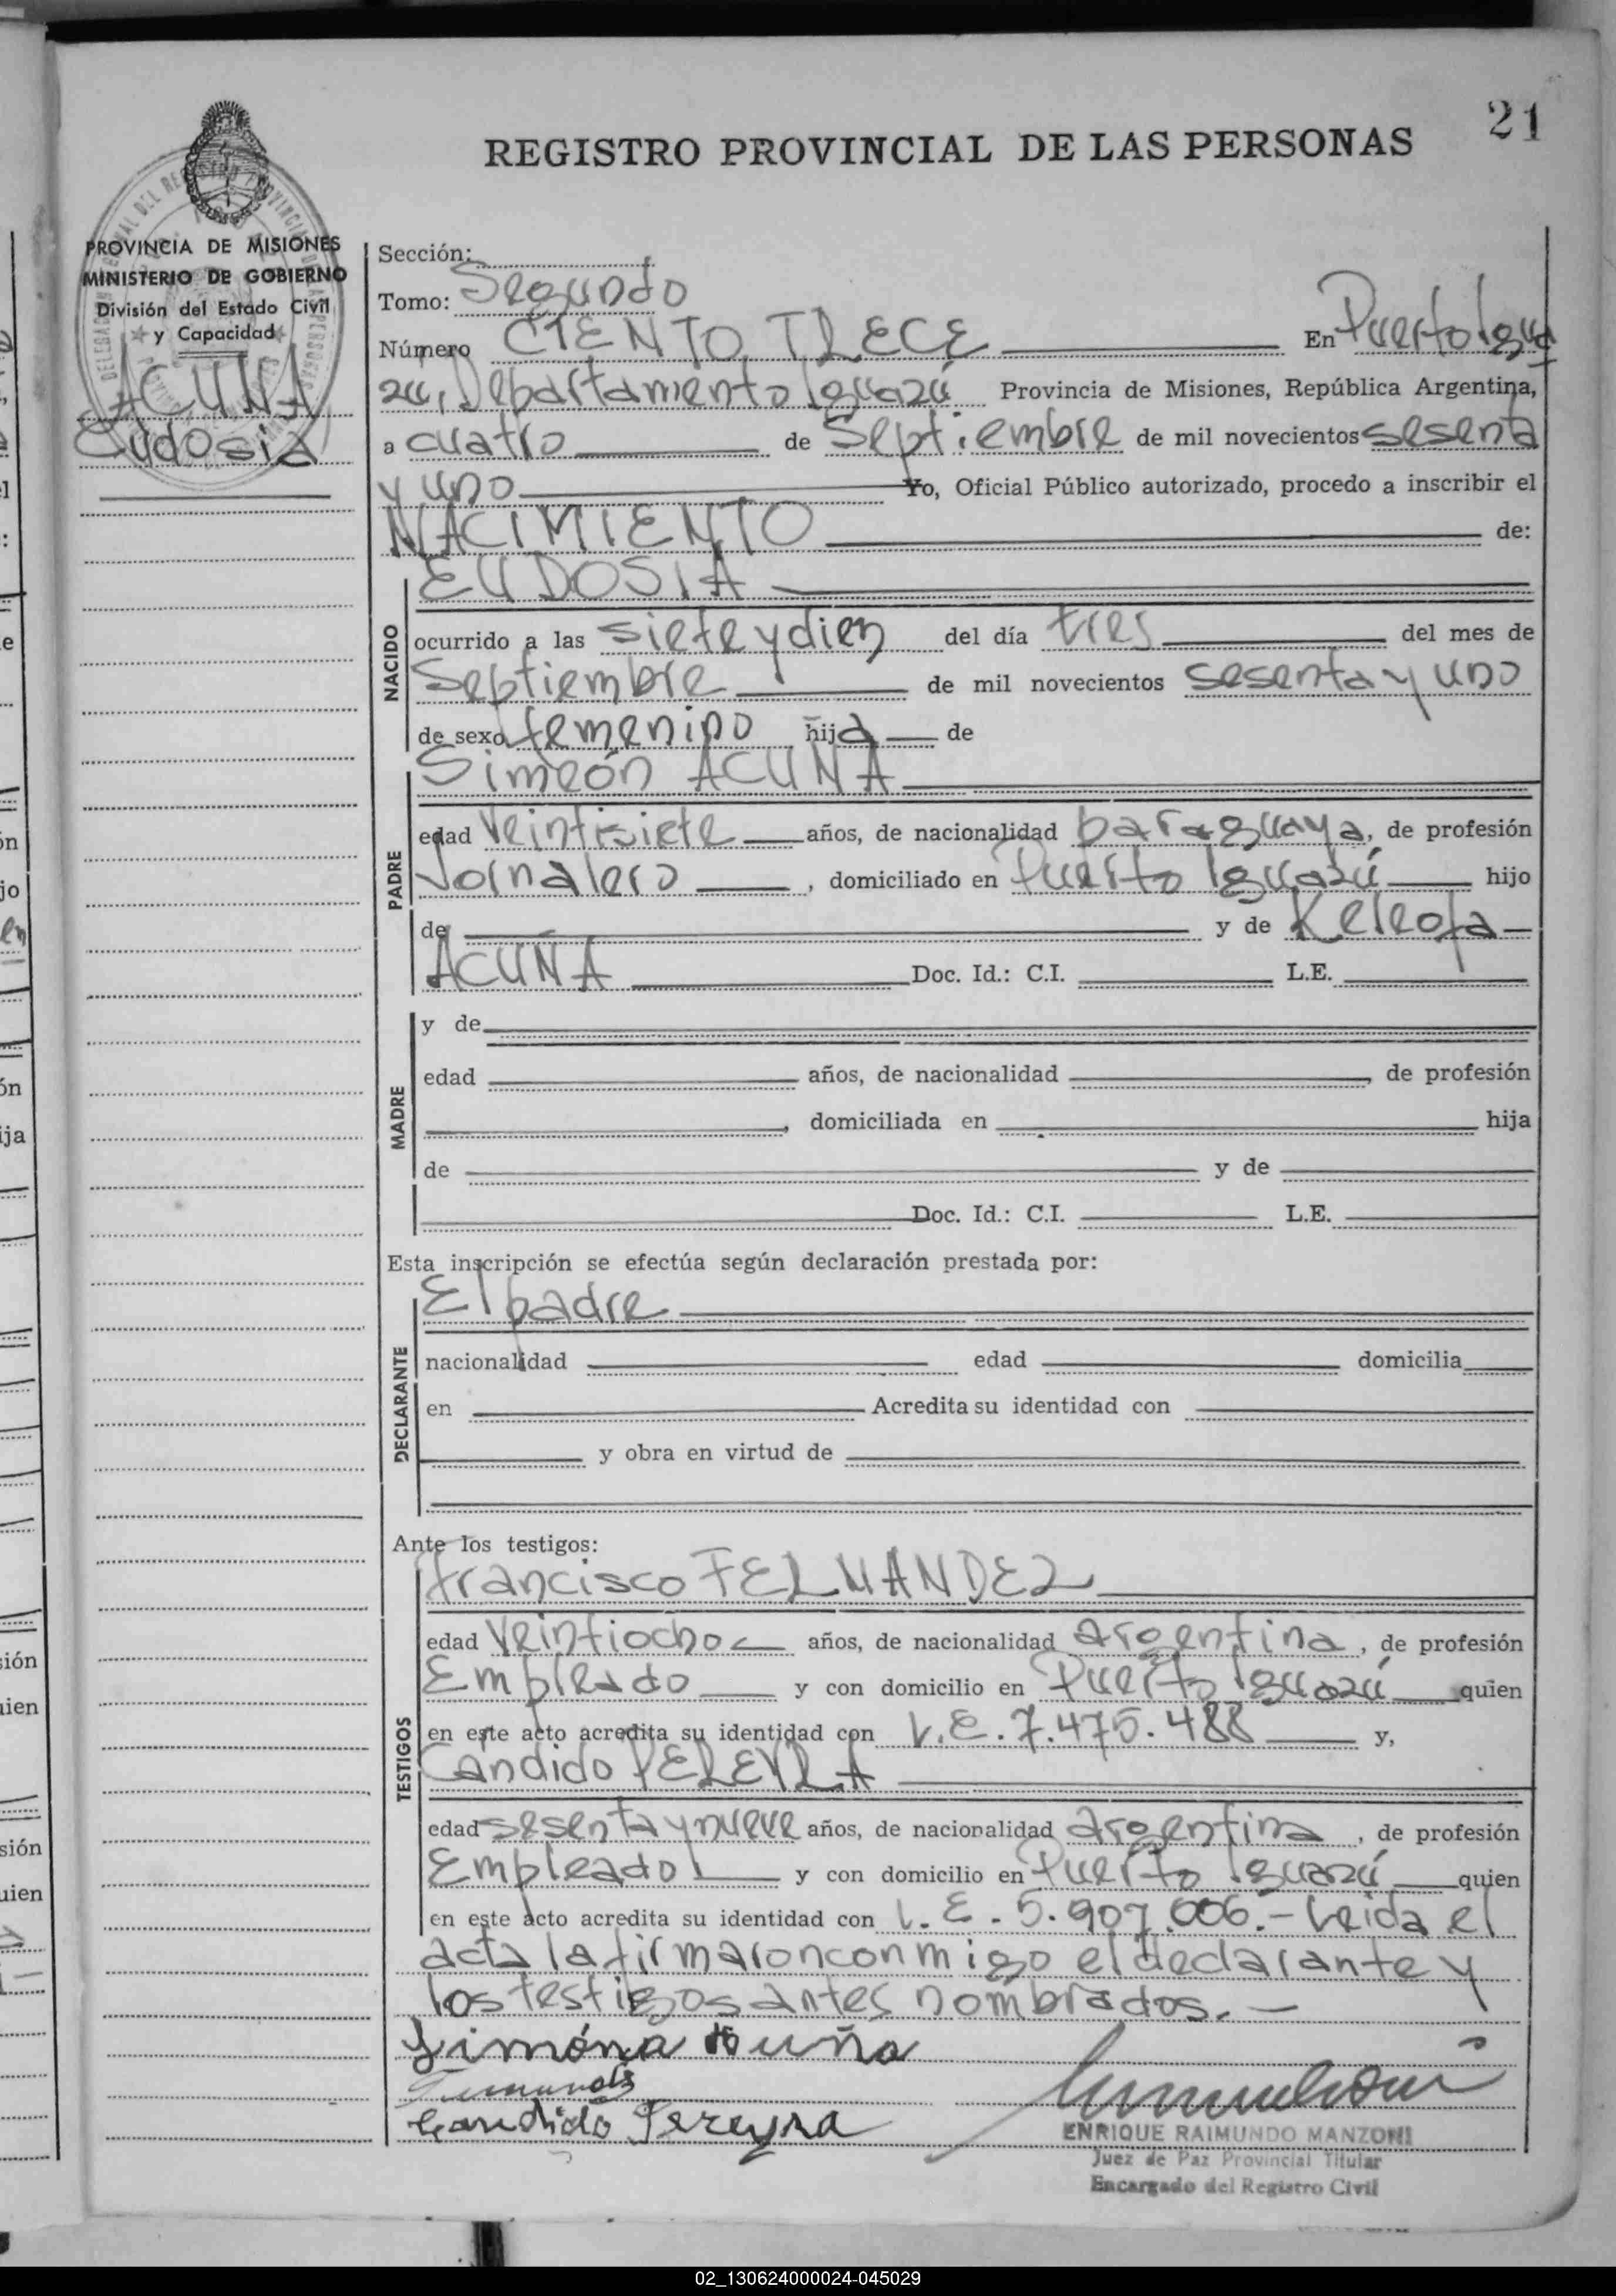 21
REGISTRO PROVINCIAL DE LAS PERSONAS
PROVINCIA DE MISIONES
MINISTERIO DE GOBIERNO
División del Estado Civil
y Capacidad
ACUÑA
Eudosia
Sección:
Tomo: Segundo
Número CIENTO TRECE En Puerto Igua
zú, Departamento Iguazú Provincia de Misiones, República Argentina,
a cuatro de Septiembre de mil novecientos sesenta
y uno Yo, Oficial Público autorizado, procedo a inscribir el
NACIMIENTO de:
NACIDO
EUDOSIA
ocurrido a las siete y diez del día tres del mes de
Septiembre de mil novecientos sesenta y uno
de sexo femenino hija de
PADRE
Simeón ACUÑA
edad veintisiete años, de nacionalidad paraguaya, de profesión
Jornalero, domiciliado en Puerto Iguazú hijo
de y de Keleofa
ACUÑA Doc. Id.: C.I. L.E.
MADRE
y de
edad años, de nacionalidad , de profesión
, domiciliada en hija
de y de
Doc. Id.: C.I. L.E.
Esta inscripción se efectúa según declaración prestada por:
DECLARANTE
El padre
nacionalidad edad domicilia
en Acredita su identidad con
y obra en virtud de
Ante los testigos:
TESTIGOS
Francisco FERNANDEZ
edad veintiocho años, de nacionalidad argentina, de profesión
Empleado y con domicilio en Puerto Iguazú quien
en este acto acredita su identidad con L.E. 7.475.488 y,
Candido PEREYRA
edad sesenta y nueve años, de nacionalidad argentina, de profesión
Empleado y con domicilio en Puerto Iguazú quien
en este acto acredita su identidad con L.E. 5.907.006.- Leida el
acta la firmaron conmigo el declarante y
los testigos antes nombrados.-
Candido Pereyra
ENRIQUE RAIMUNDO MANZONI
Juez de Paz Provincial Titular
Encargado del Registro Civil
02_130624000024-045029